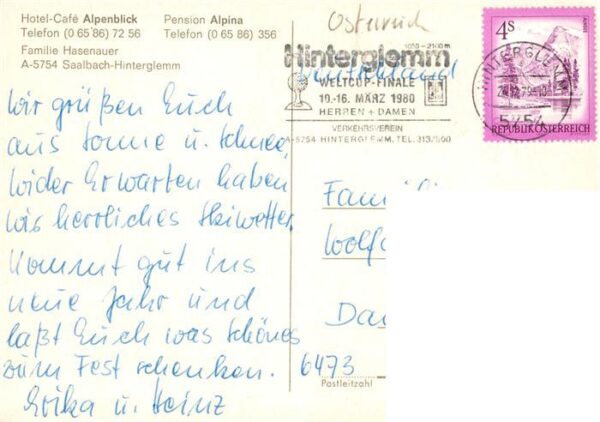 Hotel-Café Alpenblick
Telefon (0 65 86) 72 56
Pension Alpina
Telefon (0 65 86) 356
Familie Hasenauer
A-5754 Saalbach-Hinterglemm
Österreich
Hinterglemm
1010-2100 m
WELTCUP-FINALE
10.-16. MÄRZ 1980
HERREN + DAMEN
VERKEHRSVEREIN
A-5754 HINTERGLEMM, TEL. 313/500
4S
HINTERGLEMM
5754
REPUBLIK ÖSTERREICH
Wir grüßen Euch
aus Sonne u. Schnee,
wider Erwarten haben
wir herrliches Skiwetter.
Kommt gut ins
neue Jahr und
laßt Euch was schönes
zum Fest schenken.
Erika u. Heinz
Famili
Wolfg
Da
6473
Postleitzahl